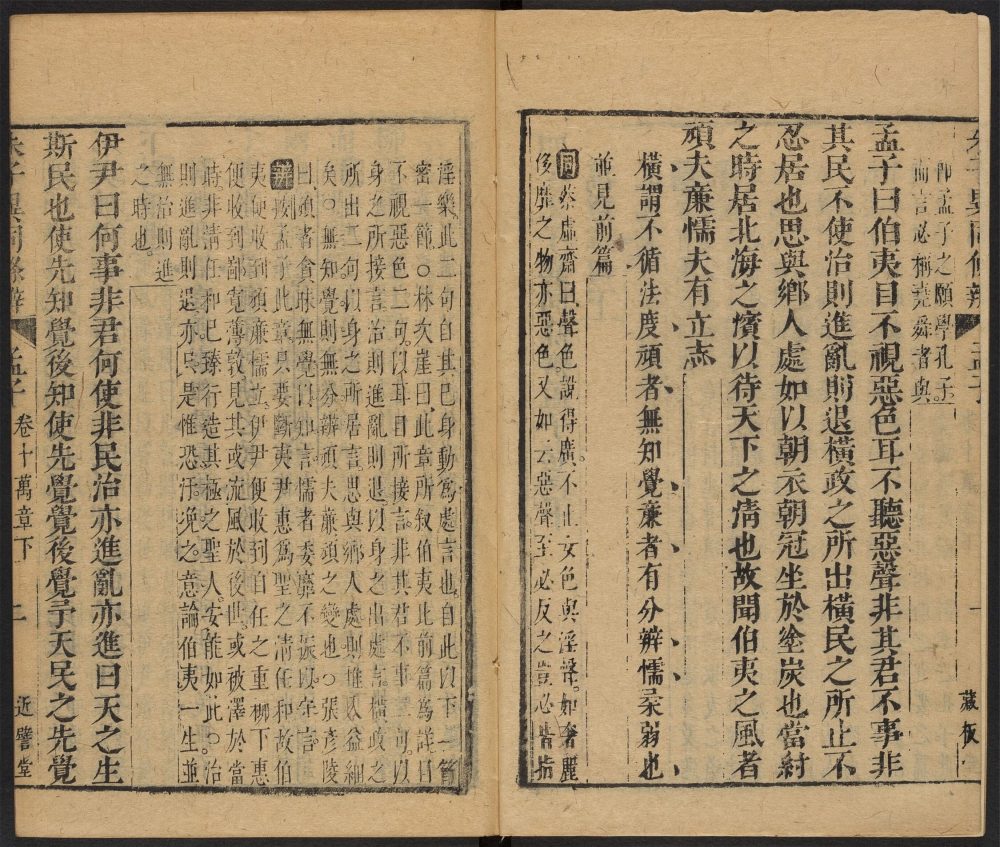 即孟子之願學孔子
而言必稱堯舜者與
孟子曰伯夷目不視惡色耳不聽惡聲非其君不事非
其民不使治則進亂則退橫政之所出橫民之所止不
忍居也思與鄉人處如以朝衣朝冠坐於塗炭也當紂
之時居北海之濱以待天下之清也故聞伯夷之風者
頑夫廉懦夫有立志
橫謂不循法度頑者無知覺廉者有分辨懦柔弱也
並見前篇
同蔡虛齋曰聲色說得廣不止女色與淫聲如奢麗
侈靡之物亦惡色又如云惡聲至必反之豈必皆指
淫樂此二句自其已身動為處言也自此以下一節
密一節○林次崖曰此章所叙伯夷比前篇為詳目
不視惡色二句以耳目所接言非其君不事二句以
身之所接言治則進亂則退以身之出處言橫政之
所出二句以身之所居言思與鄉人處則推以益細
矣○無知覺則無分辨頑夫廉頑之變也○張彥陵
曰頑者貪昧無覺以知言懦者委靡不振以守言
辨按孟子此章只要斷夷尹惠為聖之清任和故伯
夷便收到頑廉懦立伊尹便收到自任之重柳下惠
便收到鄙寬薄敦見其或流風於後世或被澤於當
時非清任和已臻行造其極之聖人安能如此○治
則進亂則退亦只是惟恐汙浼之意論伯夷一生並
無治則進
之時也
伊尹曰何事非君何使非民治亦進亂亦進曰天之生
斯民也使先知覺後知使先覺覺後覺予天民之先覺
朱子異同條辨
孟子
卷十萬章下
二
近譬堂
朱子異同條辨
孟子
一
藏板